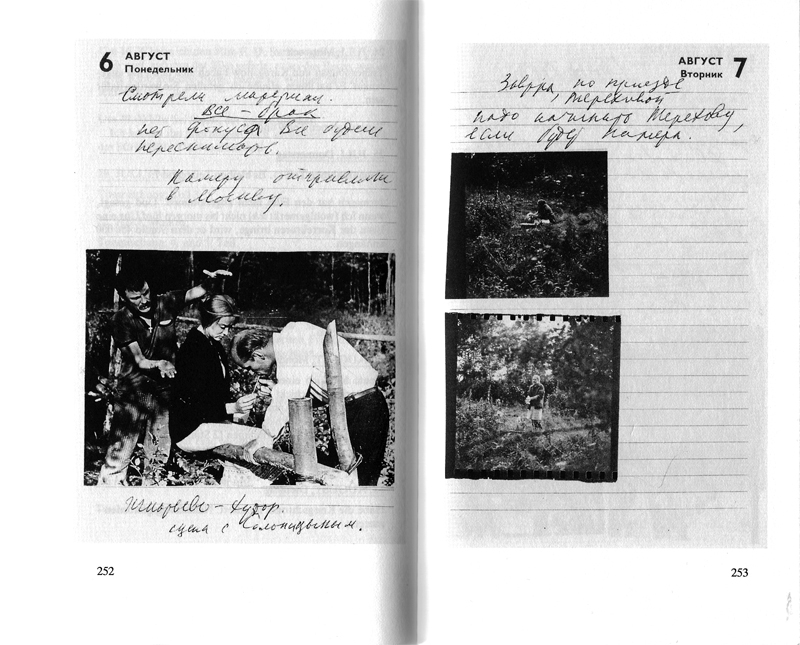 6 АВГУСТ
Понедельник
Смотрели материал.
Все – брак
нет фокуса Все будем
переснимать.
Камеру отправили
в Москву.
Игнатьево – Хутор.
сцена с Солоницыным.
252
АВГУСТ 7
Вторник
Завтра, по приезде
Тереховой
надо начинать Терехову,
если будет камера.
253